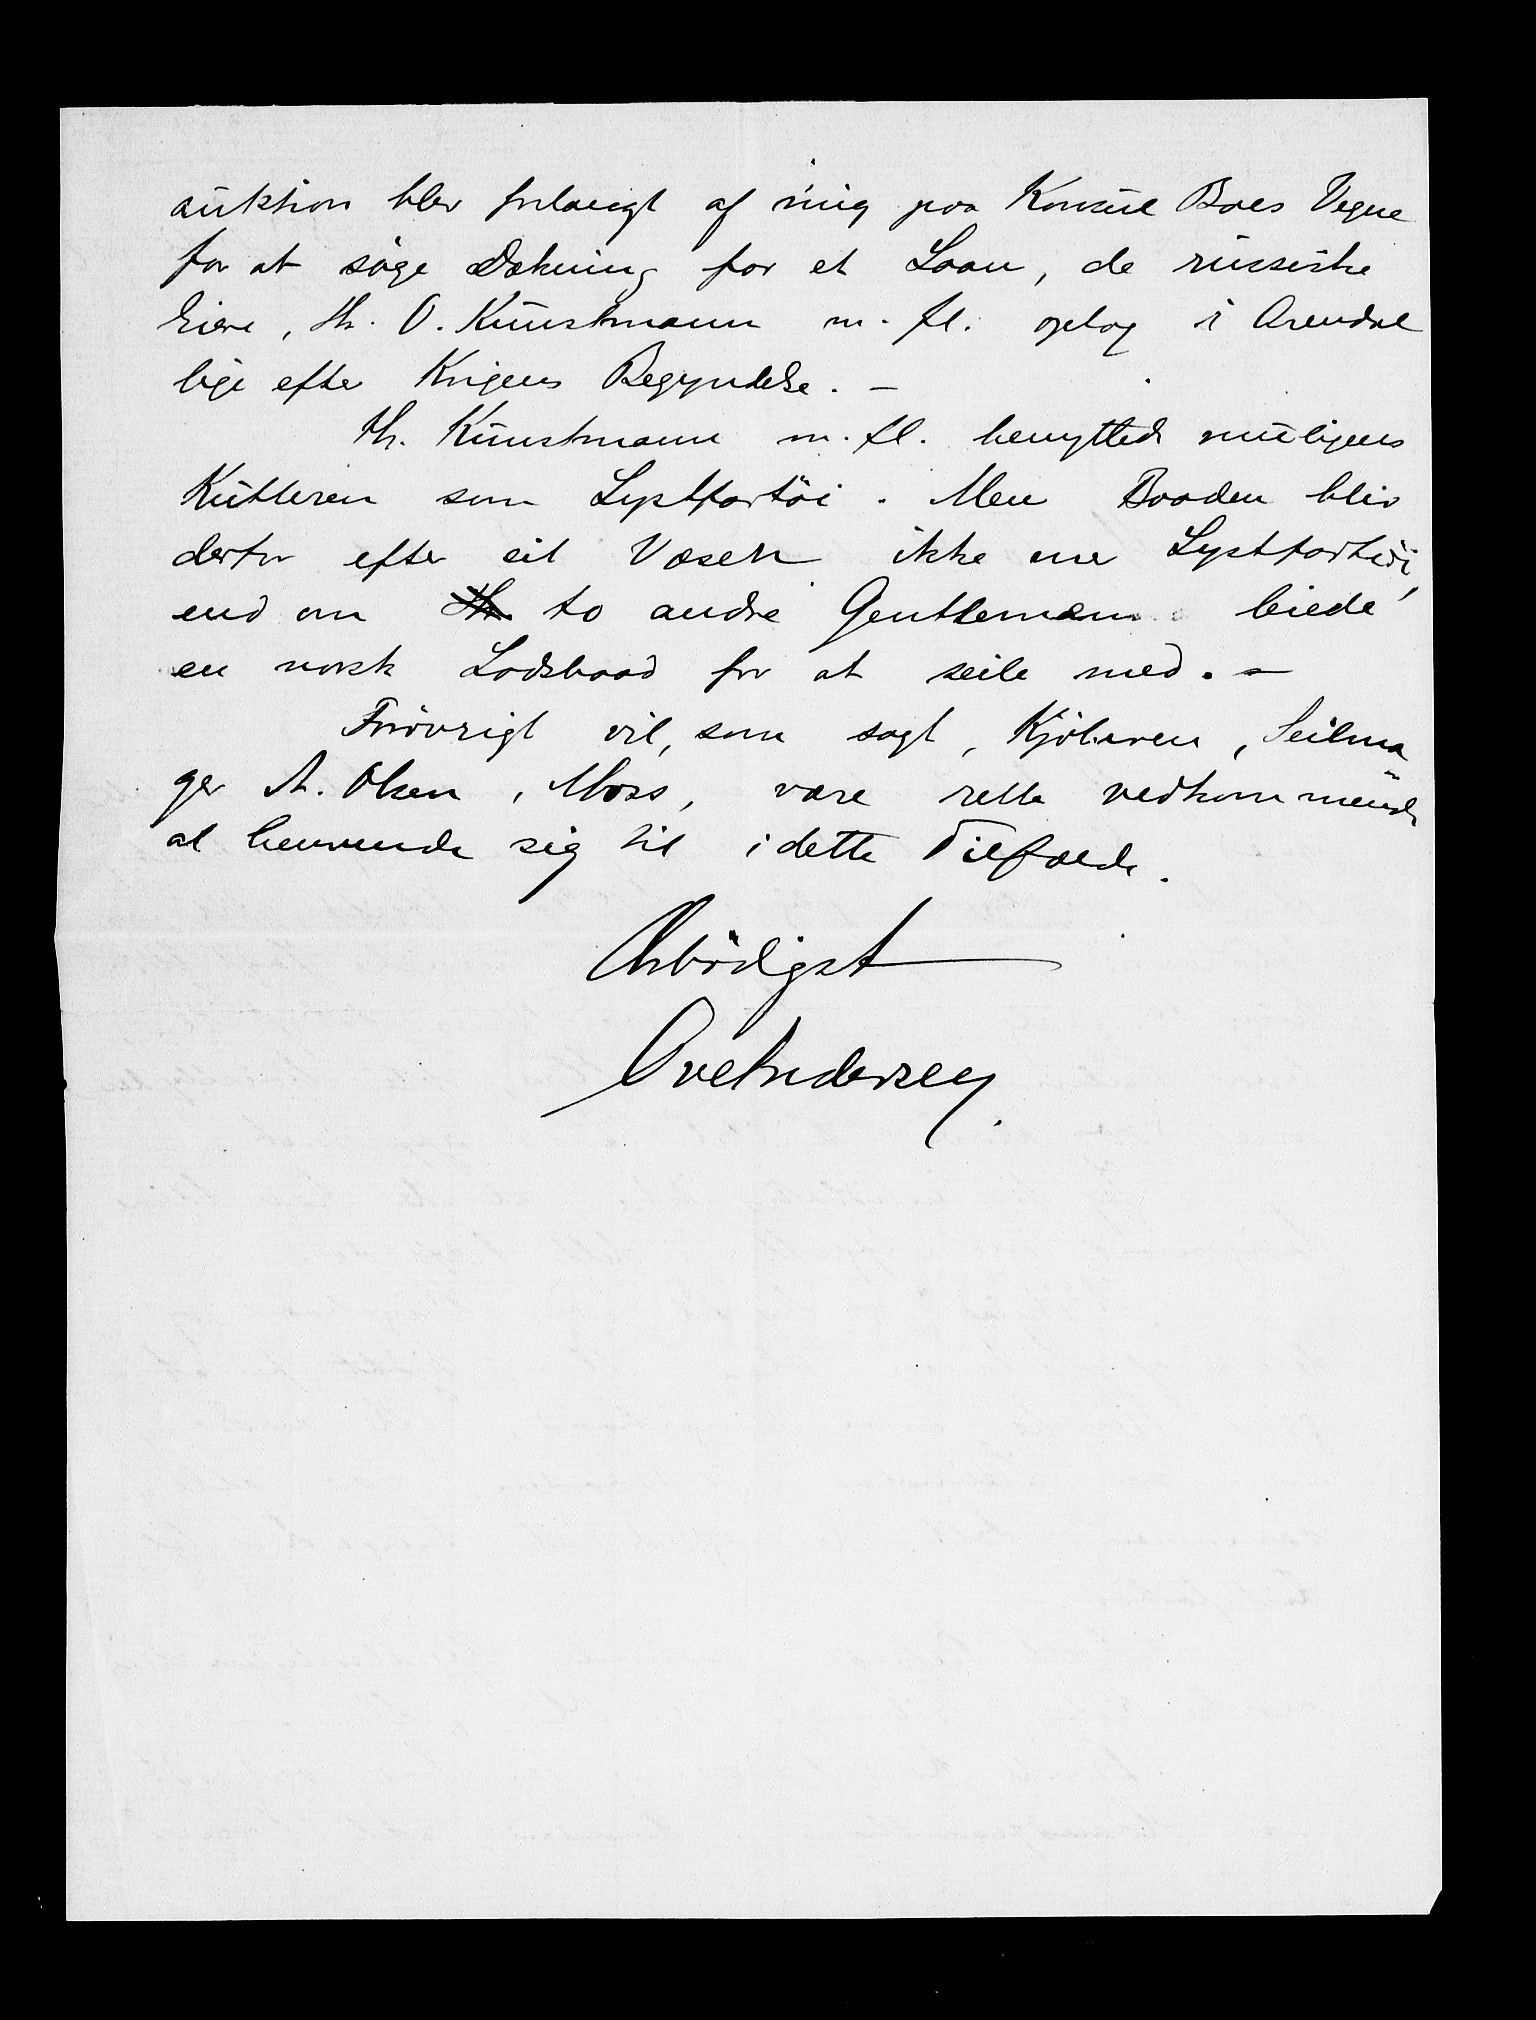 auktion blev forlangt af mig paa Konsul Boes Vegne
for at søge Dækning for et Laan, de russiske
Eiere, Hr. O. Kunstmann m. fl. optog i Arendal
lige efter Krigens Begyndelse. –
Hr. Kunstmann m. fl. benyttede muligens
Kutteren som Lystfartöi. Men Baaden blev
derfor efter sit Væsen ikke mer Lystfartöi,
end om to andre Gentlemæn leiede
en norsk Lodsbaad for at seile med. –
Forövrigt vil, som sagt, Kjöberen, Seilma=
ger A. Olsen, Moss, være rette vedkommende
at henvende sig til i dette Tilfælde.
Ærbödigst
Ove Andersen.